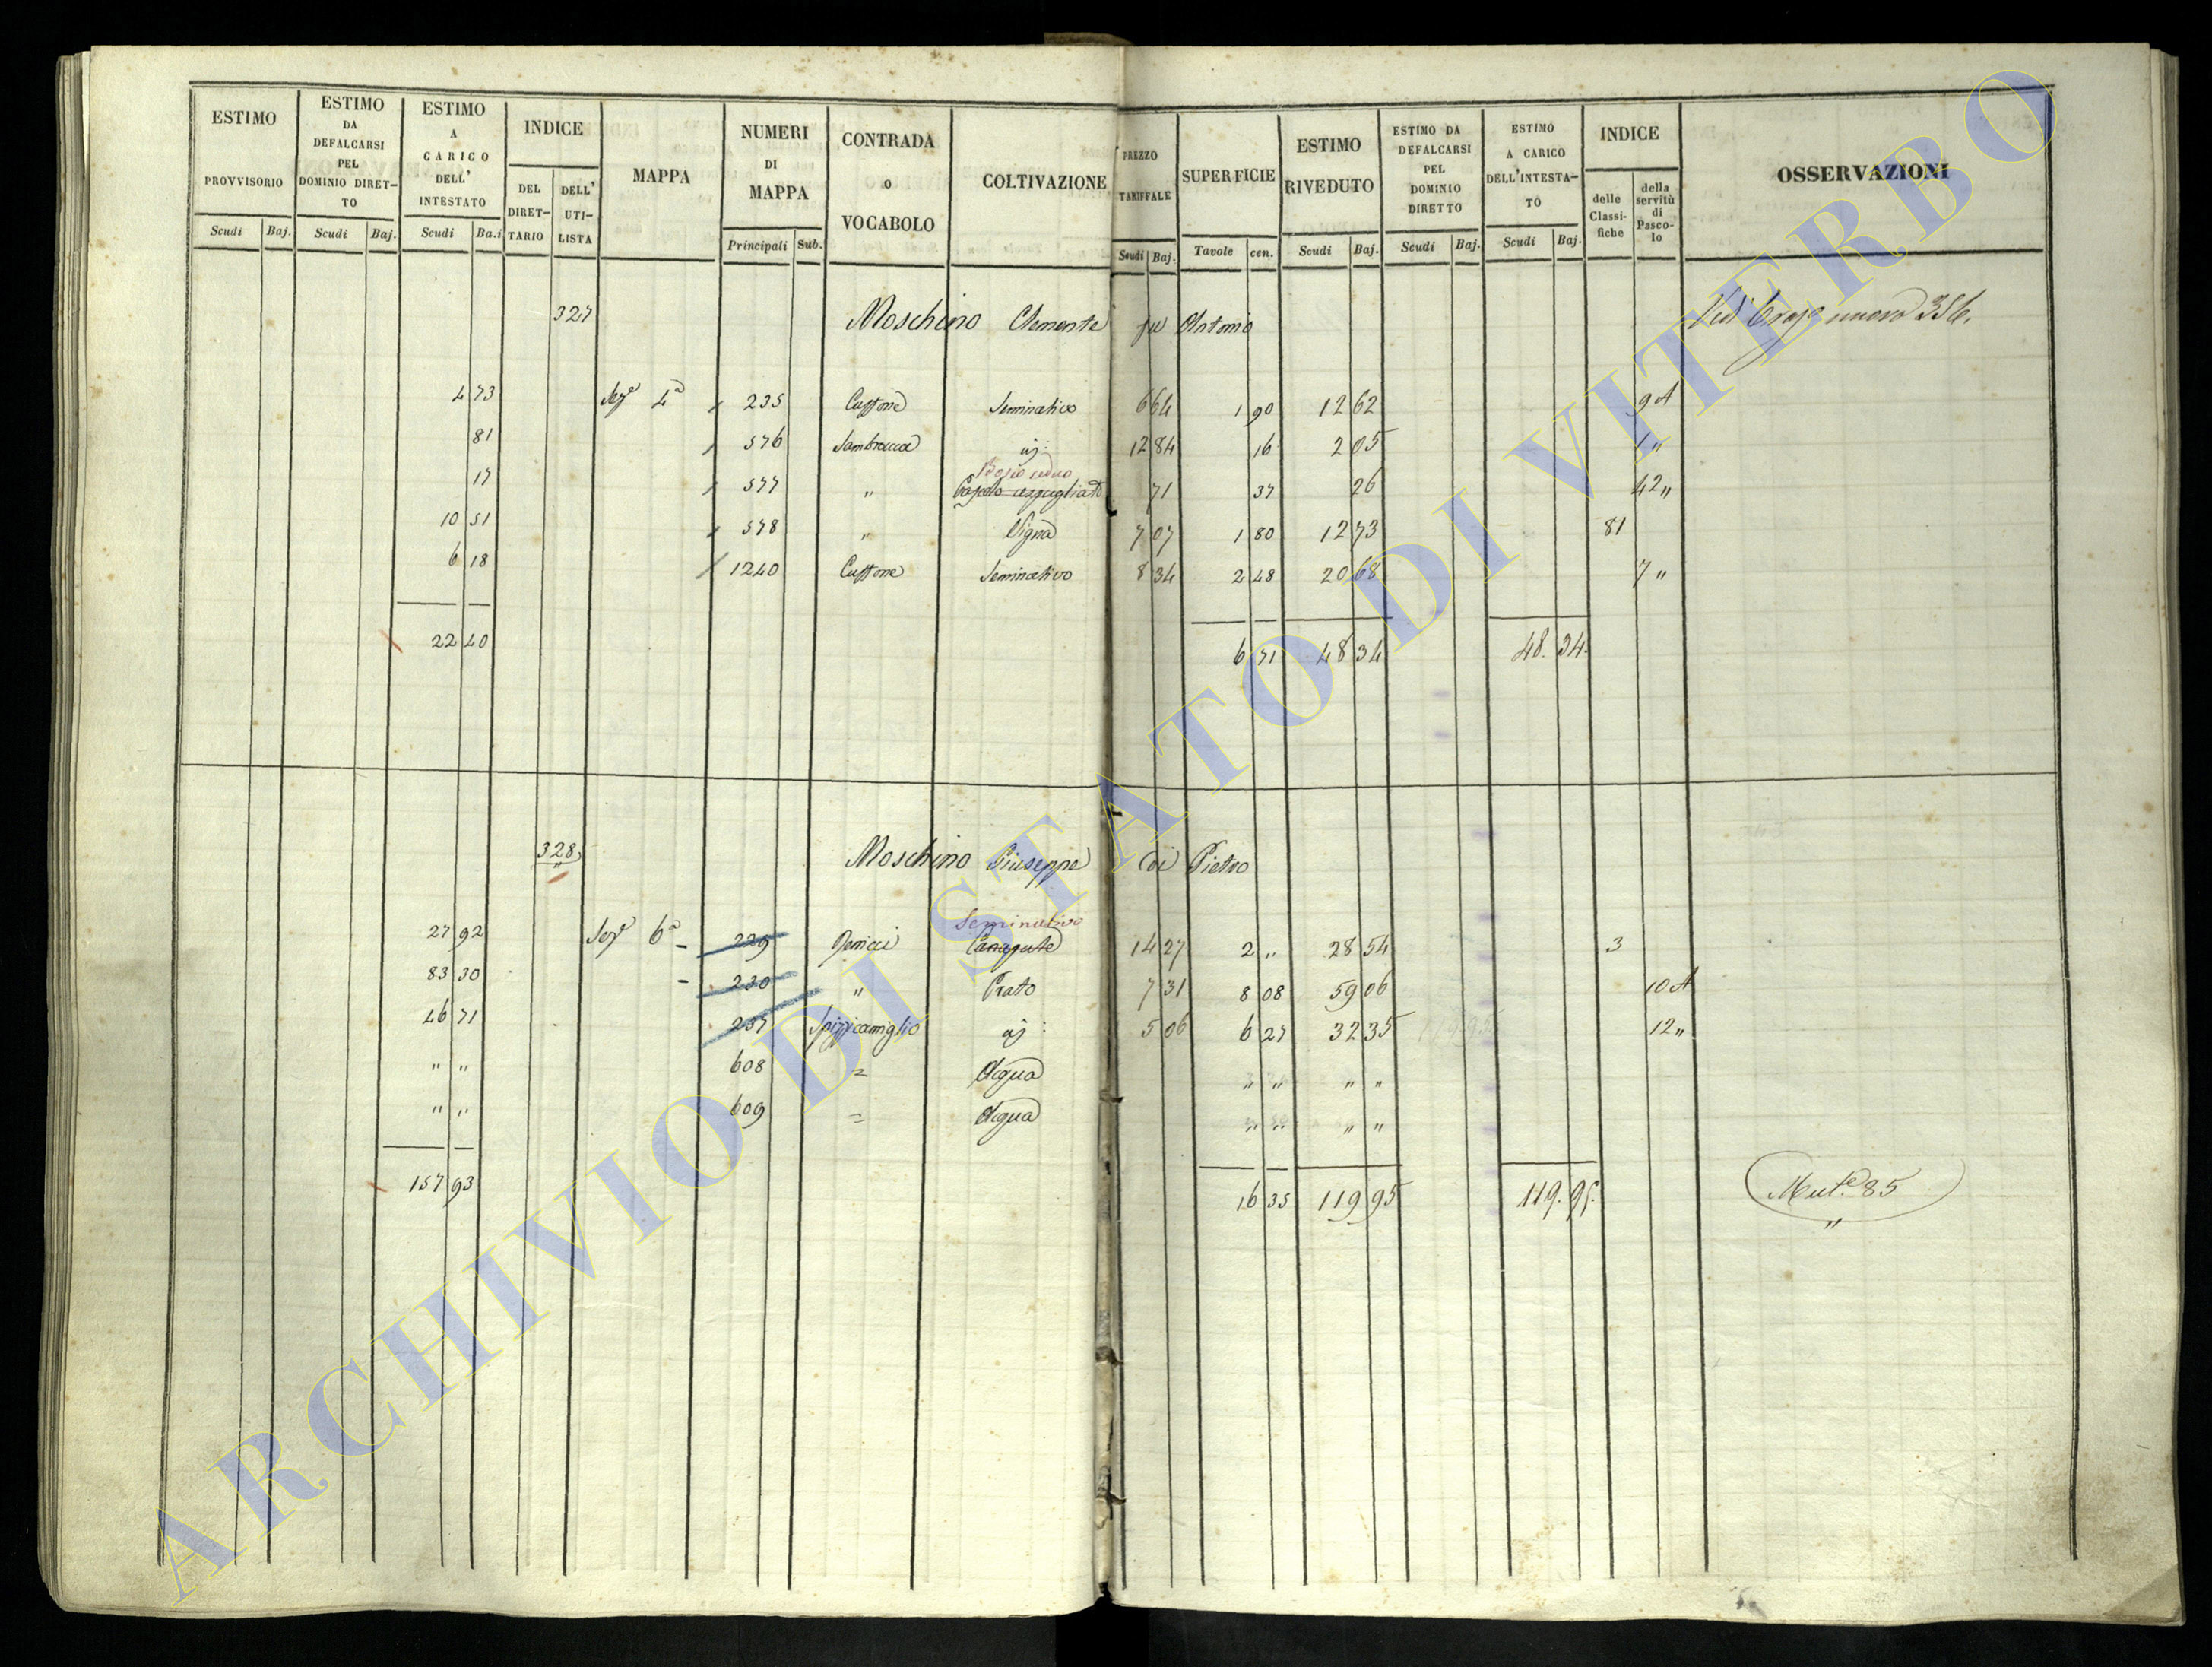 ESTIMO PROVVISORIO Scudi Baj.
ESTIMO DA DEFALCARSI PEL DOMINIO DIRET- TO Scudi Baj.
ESTIMO A CARICO DELL' INTESTATO Scudi Ba.i
INDICE DEL DIRET- TARIO DELL' UTI- LISTA
MAPPA
NUMERI DI MAPPA Principali Sub.
CONTRADA O VOCABOLO
COLTIVAZIONE
PREZZO TARIFFALE Scudi Baj.
SUPERFICIE Tavole cen.
ESTIMO RIVEDUTO Scudi Baj.
ESTIMO DA DEFALCARSI PEL DOMINIO DIRETTO Scudi Baj.
ESTIMO A CARICO DELL'INTESTA- TO Scudi Baj.
INDICE delle Classi- fiche della servitù di Pasco- lo
OSSERVAZIONI
327 Moschino Clemente fu Antonio Vedi nuovo 356.
4 73 Sez.e 4a 235 Seminativo 6 64 1 90 12 62 9 A
81 576 Sambrucca 12 84 16 2 05 1 "
17 577 " Bosco ceduo
Pascolo cespugliato 71 37 26 42 "
10 51 578 " Vigna 7 07 1 80 12 73 81
6 18 1240 Seminativo 8 34 2 48 20 68 7 "
22 40 6 71 48 34 48. 34.
328 Moschino Giuseppe di Pietro
Seminativo
27 92 Sez.e 6a 229 Canapule 14 27 2 " 28 54 3
83 30 230 " Prato 7 31 8 08 59 06 10 A
46 71 237 Spizzicamiglio 5 06 6 27 32 35 12 "
" " 608 = Acqua " " " "
" " 609 = Acqua " " " "
157 93 16 35 119 95 119. 95. Mut.e 85
"
ARCHIVIO DI STATO DI VITERBO